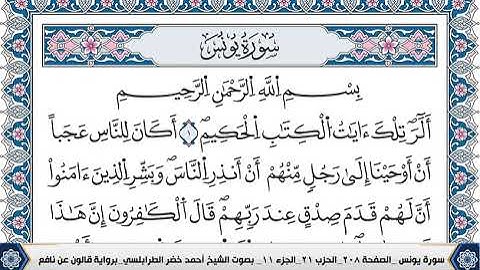 سُورَةُ يُونُسَ
بِسْمِ اِللَّهِ اِلرَّحْمَٰنِ اِلرَّحِيمِ
أَلَٓرَۖ تِلْكَ ءَايَٰتُ اُلْكِتَٰبِ اِلْحَكِيمِۖ ١ أَكَانَ لِلنَّاسِ عَجَباً
أَنْ أَوْحَيْنَا إِلَىٰ رَجُلٍ مِّنْهُمْ أَنْ أَنذِرِ اِلنَّاسَۖ وَبَشِّرِ اِلذِينَ ءَامَنُواْ
أَنَّ لَهُمْ قَدَمَ صِدْقٍ عِندَ رَبِّهِمْۖ قَالَ اَلْكَٰفِرُونَ إِنَّ هَٰذَا
سورة يونس _الصفحة ٢٠٨_ الحزب ٢١_الجزء ١١_ بصوت الشيخ أحمد خضر الطرابلسي_برواية قالون عن نافع